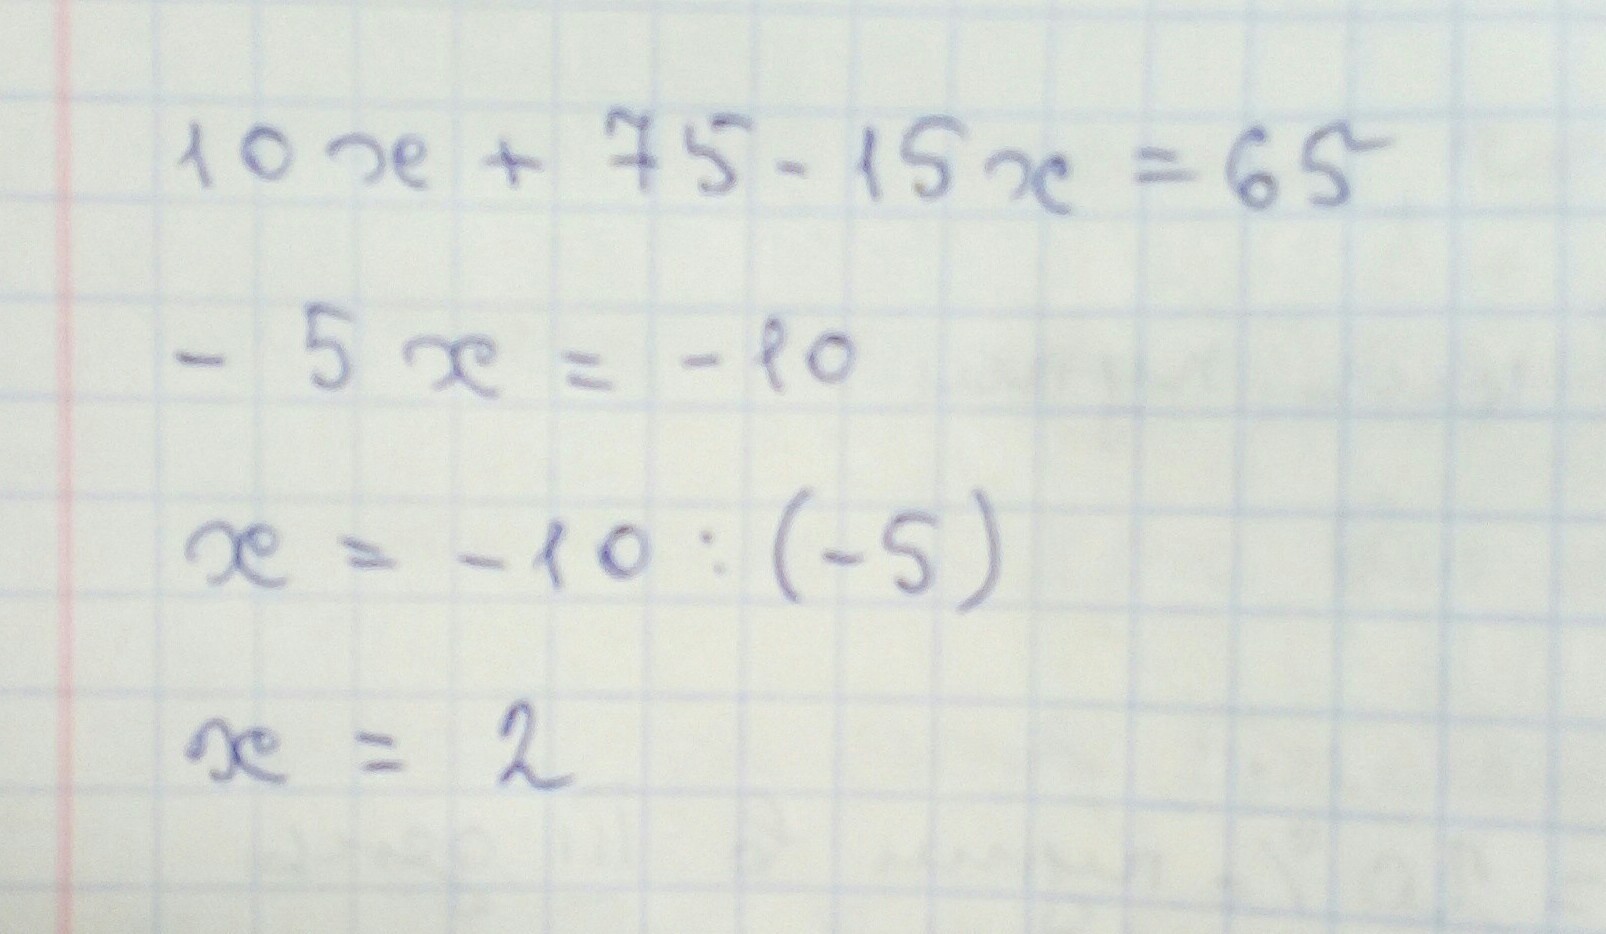 10x + 75 - 15x = 65
- 5x = -10
x = -10 : (-5)
x = 2